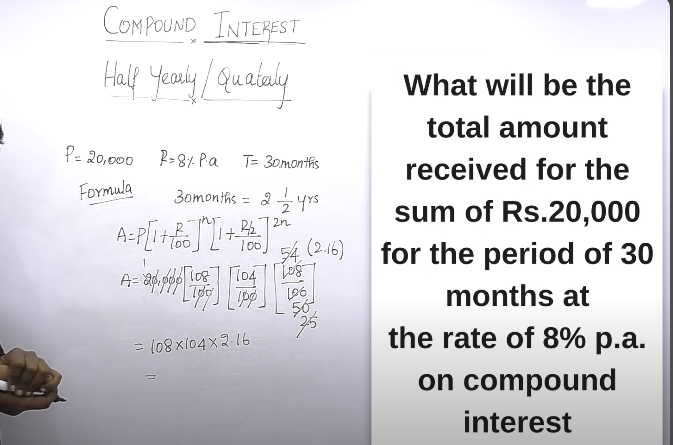 COMPOUND INTEREST
Half Yearly / Quaterly
P = 20,000 R = 8% P.a T = 30 months
Formula
30 months = 2 1/2 yrs
A = P[1 + R/100]^n [1 + R/2/100]^2n
A = 20,000 [108/100] [104/100] [108/100]
1 54 (2.16)
50
25
= 108 × 104 × 2.16
=
What will be the
total amount
received for the
sum of Rs.20,000
for the period of 30
months at
the rate of 8% p.a.
on compound
interest